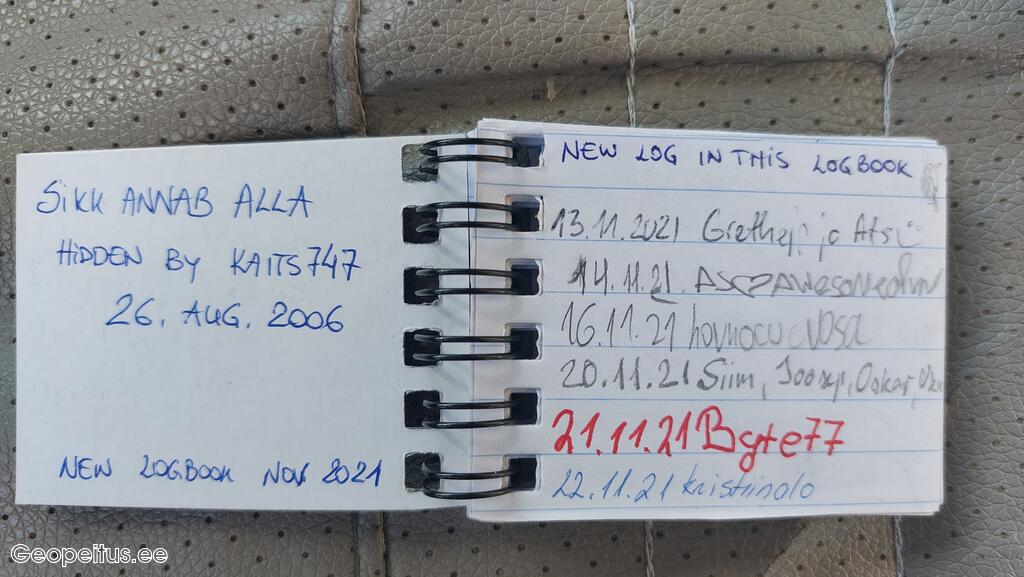 SIKK ANNAB ALLA
HIDDEN BY KAITS747
26. AUG. 2006
NEW LOGBOOK NOV 2021
NEW LOG IN THIS LOGBOOK
13.11.2021 Grethe ja Atsi
14.11.21
16.11.21
20.11.21 Siim, Joosep, Oskar,
21.11.21 Byte77
22.11.21 kristiinolo
Geopeitus.ee